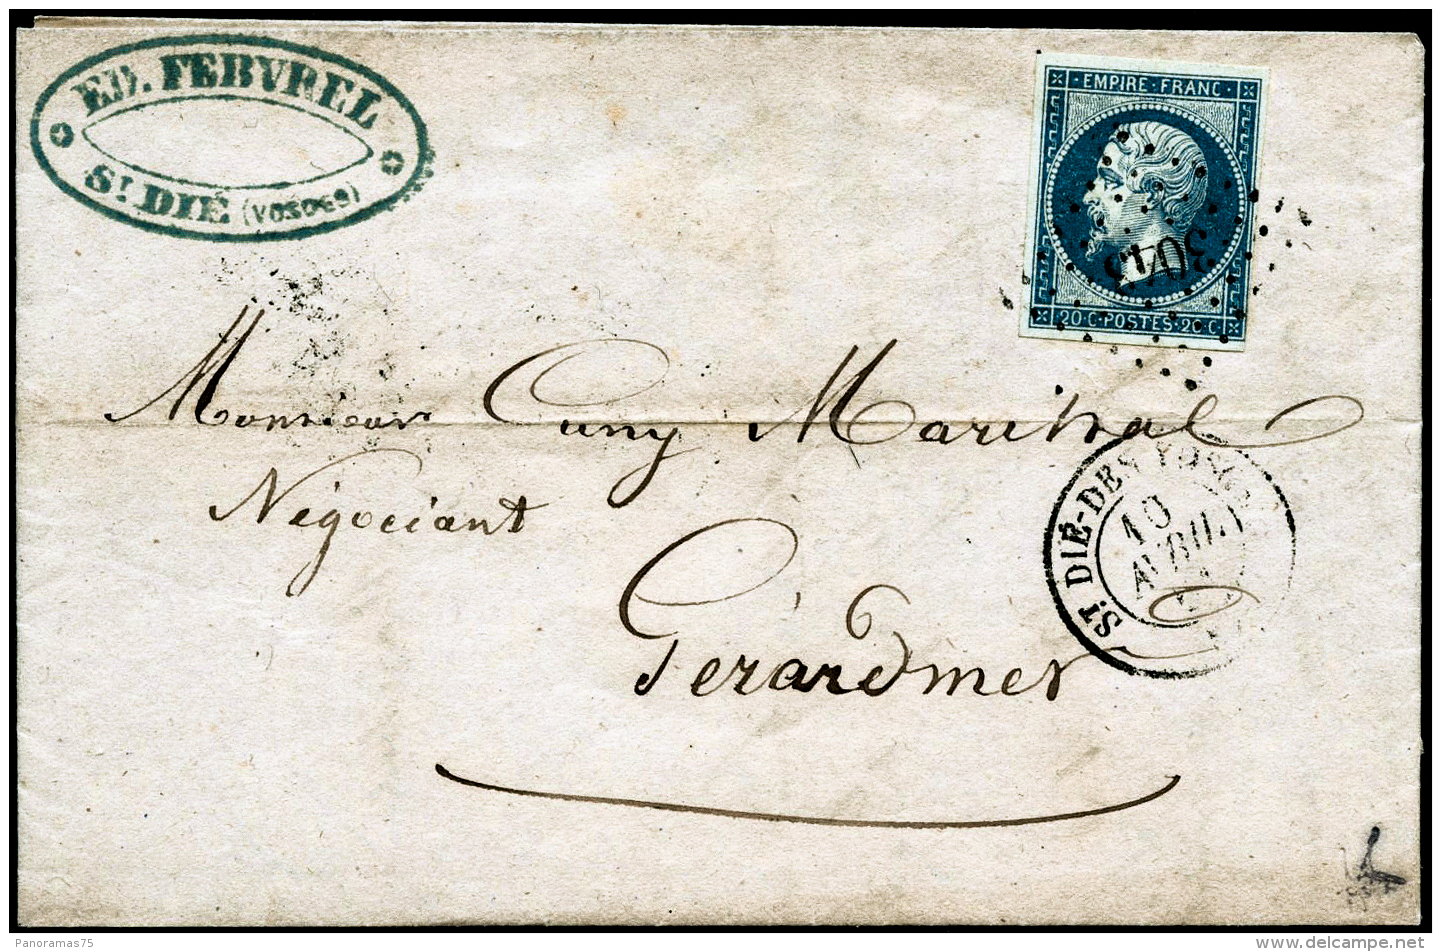 ED. FEBVREL
ST. DIÉ (VOSGES)
EMPIRE·FRANC·
3043
20·C·POSTES·20·C·
Monsieur Cuny Marichal
Négociant
Gérardmer
ST. DIÉ-DES VOSGES
10
AVRIL
Panoramas75
www.delcampe.net